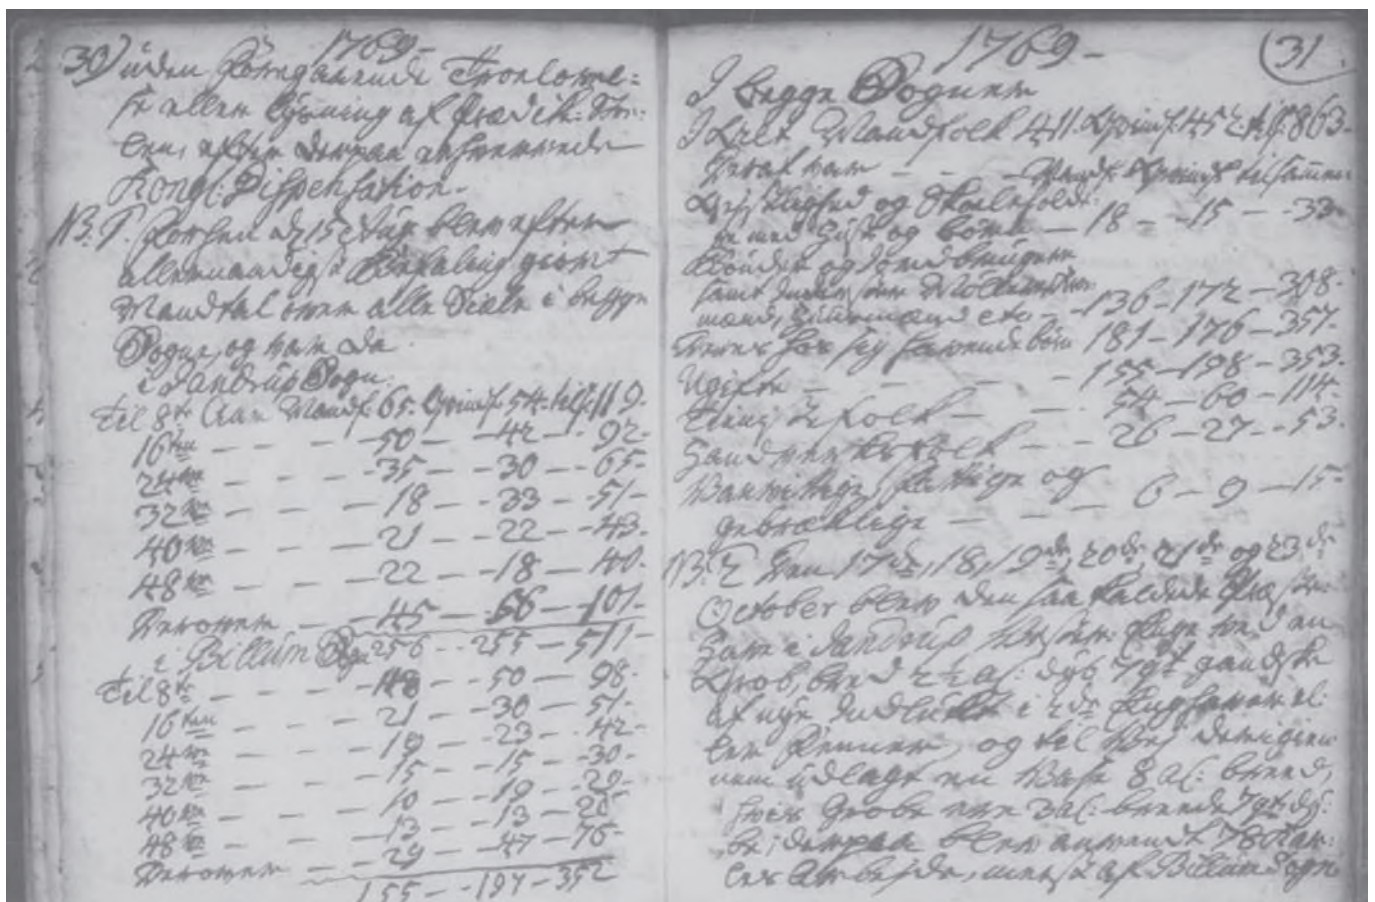 1769 –
30) uden foregaaende Troelowel=
se eller lysning af Prædike-Sto=
len, efter derpaa erhvervede
Kongl: Dispensation.
NB. 1. Torsden d 15 Aug blev efter
allernaadigst Befaling giort
Mandtal over alle Siæle i begge
Sogne, og var da
i Jandrup Sogn
til 8te Aar Mandk: 65. Qvindk: 54. tils: 119.
16ten — — — 50 — 42 — 92-
24de — — — 35 — 30 — 65-
32de — — — 18 — 33 — 51-
40de — — — 21 — 22 — 43-
48de — — — 22 — 18 — 40-
Derover — 45 — 56 — 101-
i Billum Sogn 256 — 255 — 511-
til 8te — — — 48 — 50 — 98-
16ten — — — 21 — 30 — 51-
24de — — — 19 — 23 — 42-
32de — — — 15 — 15 — 30-
40de — — — 10 — 19 — 29-
48de — — — 13 — 13 — 26-
Derover — 29 — 47 — 76-
155 — 197 — 352
1769 –
31.
I begge Sogner
I Alt Mandfolk 411. Qvindf: 452. tils: 863-
hvoraf var — — — Mandf: Qvindf: tilsamen
og Skoleholde:
re med Hust og børn — 18 — 15 — 33-
Bønder og Jordbrugere
samt
mænd, Huusmænd etc — 136 — 172 — 308-
børn 181 — 176 — 357-
Ugifte — — — 155 — 198 — 353-
Tieniste folk — — 54 — 60 — 114-
Handverksfolk — — 26 — 27 — 53-
Vanvittige, fattige og
gebrækkelige — — — 6 — 9 — 15-
NB. 2 Den 17de, 18, 19de, 20de, 21de og 23de
October blev den saa kaldede Præste
Have i Jandrup
Grob, bred 2½ al: dyb 7 qt gandske
af nye indlukt i 2de
og til Vej derigien
nem udlagt en Vase 8 al: breed,
hvis Grobe ere 3 al: breede 7 qt dyb
be; derpaa blev anvendt 78 Kar:
les Arbejde, meest af Billum Sogn